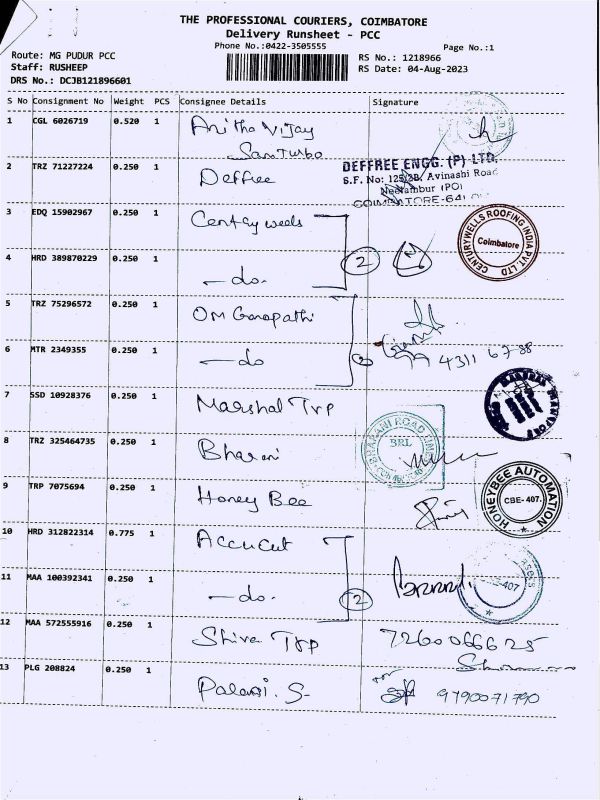 THE PROFESSIONAL COURIERS, COIMBATORE
Delivery Runsheet - PCC
Phone No.:0422-3505555
Page No.:1
Route: MG PUDUR PCC
RS No.: 1218966
Staff: RUSHEEP
RS Date: 04-Aug-2023
DRS No.: DCJB121896601
S No Consignment No Weight PCS Consignee Details Signature
1 CGL 6026719 0.520 1 Anitha Vijay
San Turbo
2 TRZ 71227224 0.250 1 Deffree
DEFFREE ENGG. (P) LTD.
S.F. No: 125/2B, Avinashi Road
Neelambur (PO)
COIMBATORE-641
3 EDQ 15902967 0.250 1 Century wells
CENTURYWELLS ROOFING INDIA PVT. LTD
Coimbatore
4 HRD 389870229 0.250 1 -do- 2
5 TRZ 75296572 0.250 1 OM Ganapathi
6 MTR 2349355 0.250 1 -do 2
99 4311 67 88
7 SSD 10928376 0.250 1 Marshal Trp
8 TRZ 325464735 0.250 1 Bharani
BRL
9 TRP 7075694 0.250 1 Honey Bee
HONEYBEE AUTOMATION
CBE- 407.
10 HRD 312822314 0.775 1 Accucut
11 MAA 100392341 0.250 1 -do- 2
407
12 MAA 572555916 0.250 1 Shiva Trp 7260066625
13 PLG 208824 0.250 1 Palani. S- 9790071790